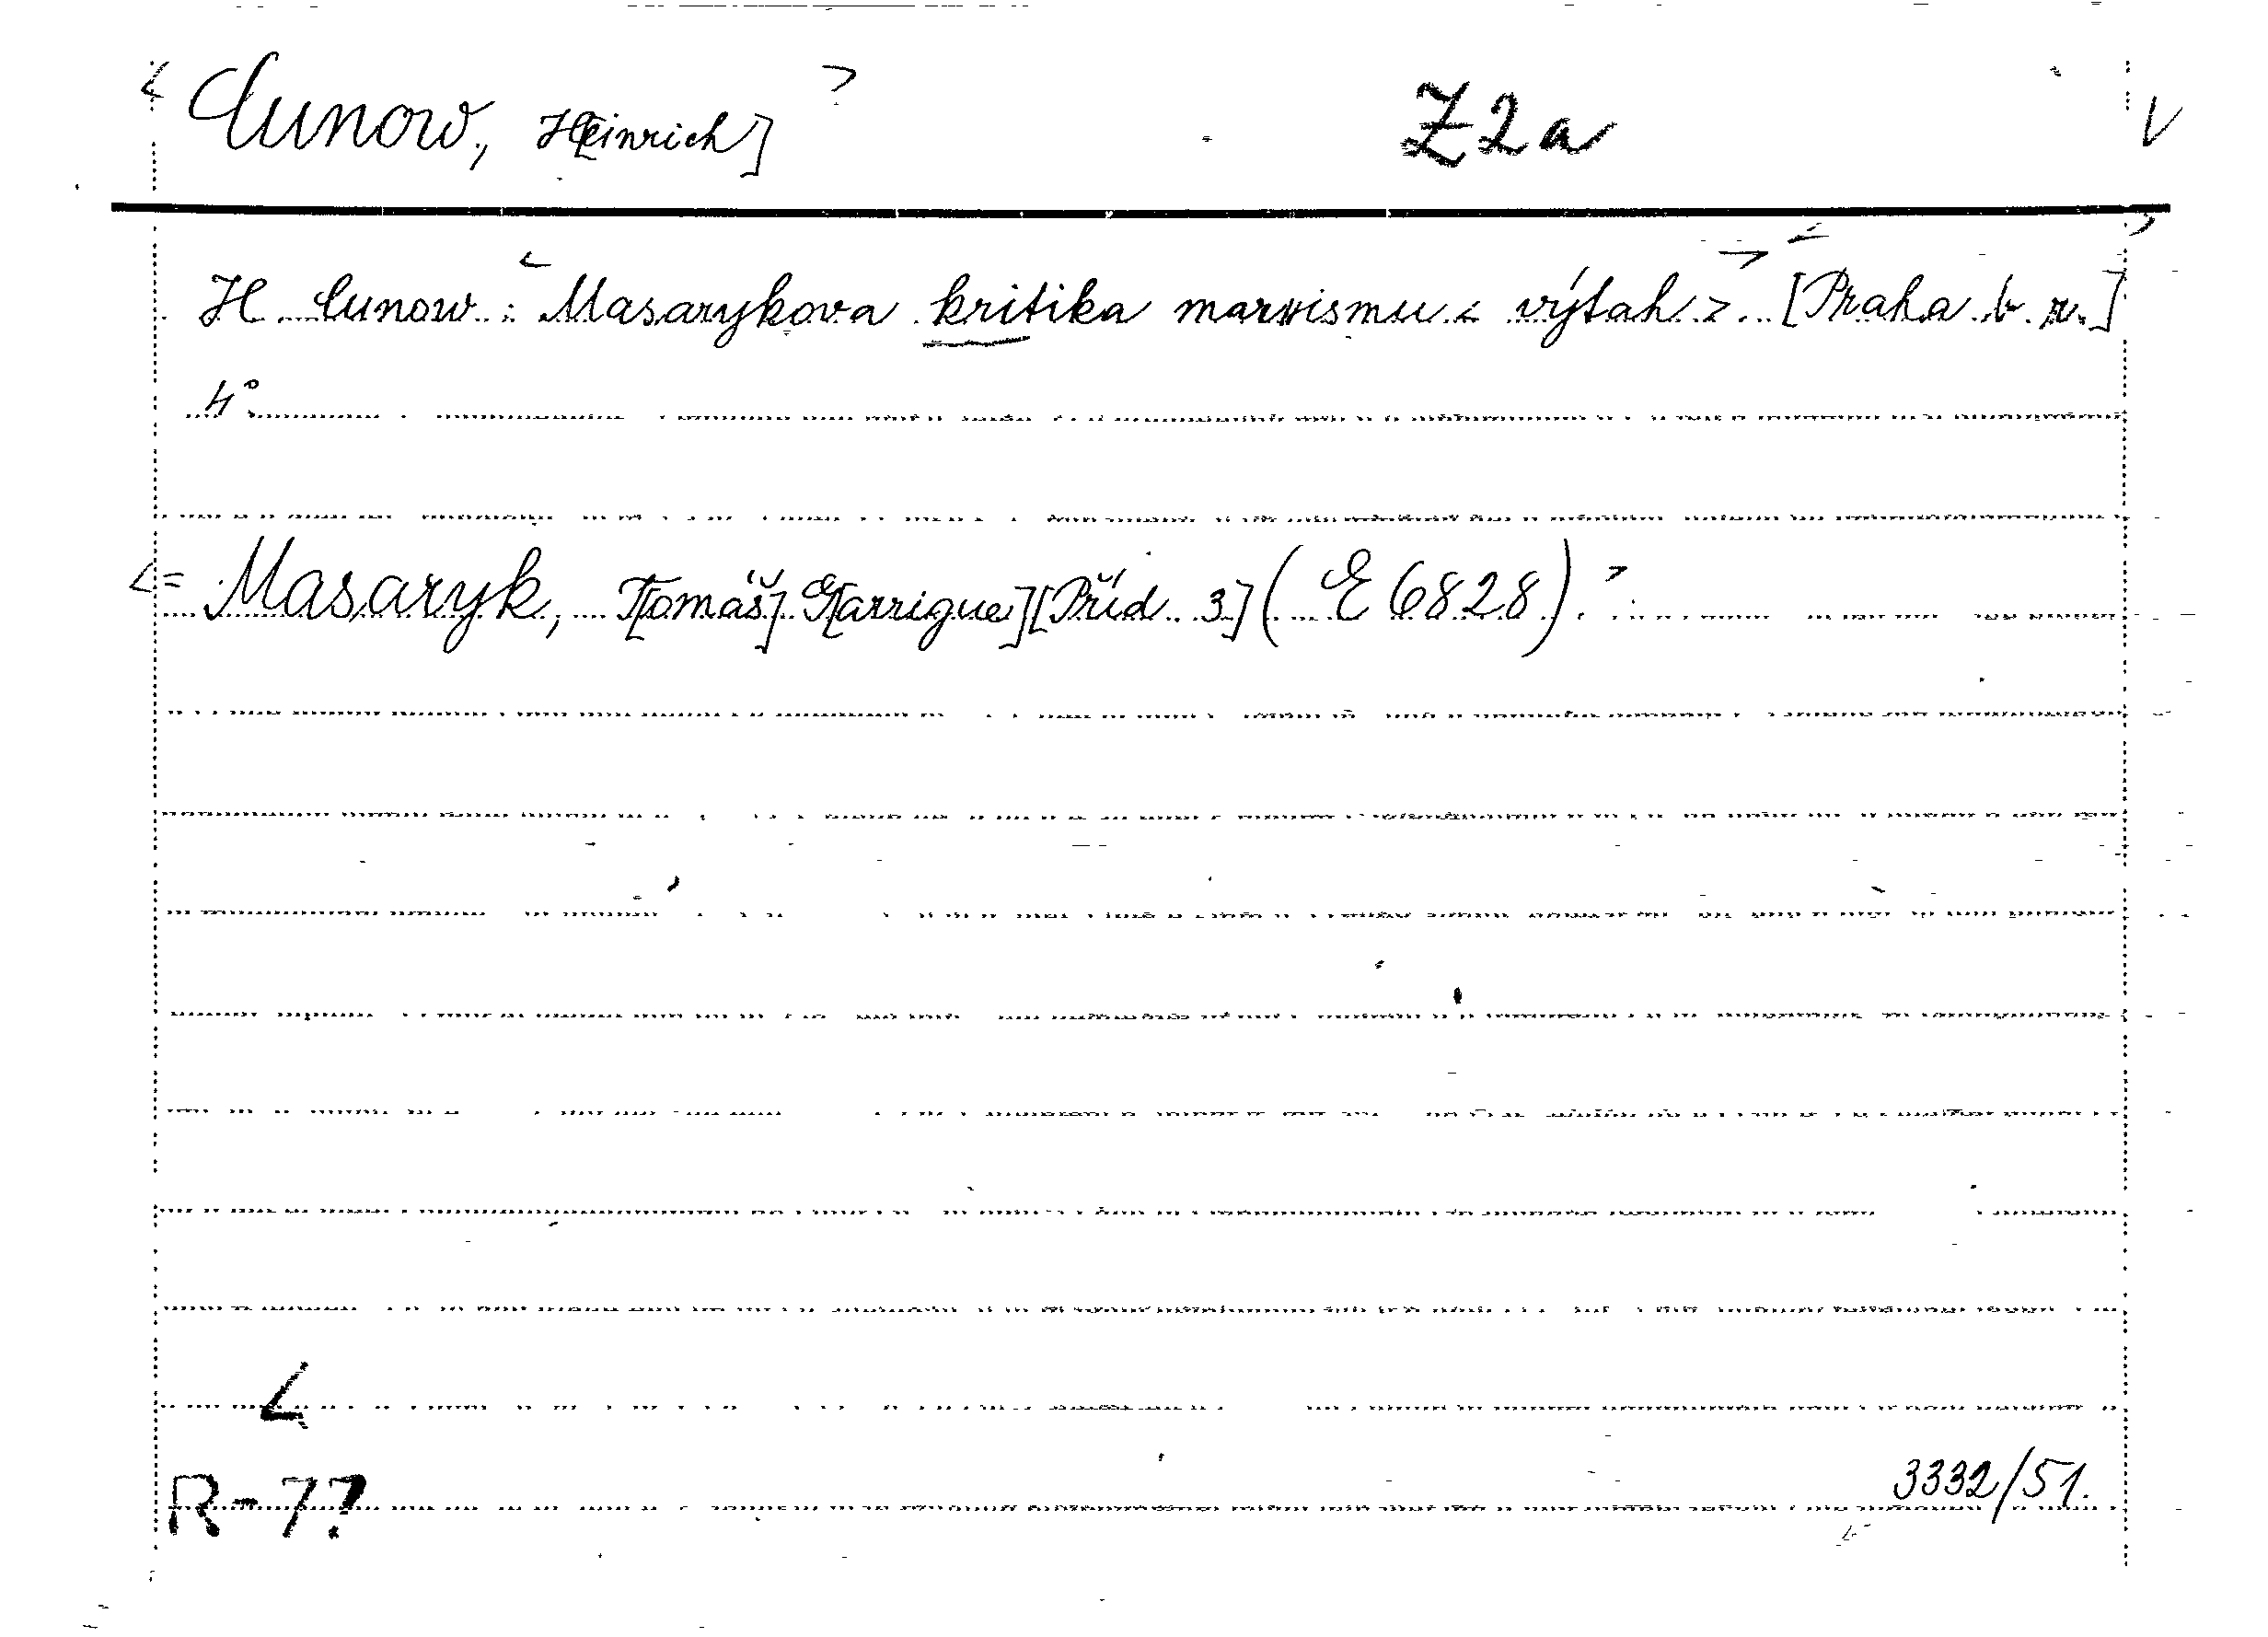 < Cunow, H[einrich] > Z2a V
H. Cunow: < Masarykova kritika marxismu < výtah >. > < [Praha b. r.] >
4°
<= Masaryk, T[omáš] G[arrigue] [Příd. 3] (E 6828). >
<
R-7?
3332/51.